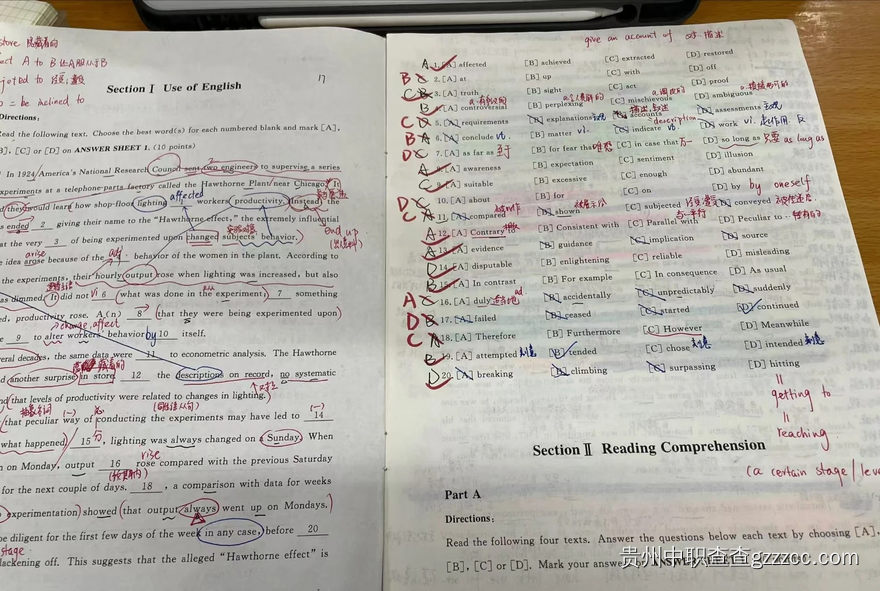 give an account of 描述
17
Section Ⅰ Use of English
Directions:
Read the following text. Choose the best word(s) for each numbered blank and mark [A],
[B], [C] or [D] on ANSWER SHEET 1. (10 points)
In 1924, America's National Research Council sent two engineers to supervise a series
experiments at a telephone-parts factory called the Hawthorne Plant near Chicago. It
they would learn how shop-floor lighting affected workers' productivity. Instead, the
ended 2 giving their name to the "Hawthorne effect," the extremely influential
at the very 3 of being experimented upon changed subjects' behavior.
end up
idea arose because of the behavior of the women in the plant. According to
the experiments, their hourly output rose when lighting was increased, but also
was dimmed. It did not 6 (what was done in the experiment; 7 something
ed, productivity rose. A(n) 8 (that they were being experimented upon)
9 to alter workers' behavior by 10 itself.
eral decades, the same data were 11 to econometric analysis. The Hawthorne
d another surprise in store. 12 the descriptions on record, no systematic
and that levels of productivity were related to changes in lighting.
that peculiar way of conducting the experiments may have led to 14
what happened. 15, lighting was always changed on a Sunday. When
n on Monday, output 16 rose compared with the previous Saturday
for the next couple of days. 18, a comparison with data for weeks
experimentation) showed (that output always went up on Mondays.
be diligent for the first few days of the week in any case, before 20
lackening off. This suggests that the alleged "Hawthorne effect" is
A 1. [A] affected [B] achieved [C] extracted [D] restored
B 2. [A] at [B] up [C] with [D] off
C 3. [A] truth [B] sight [C] act [D] proof
4. [A] controversial [B] perplexing [C] mischievous [D] ambiguous
C 5. [A] requirements [B] explanations [C] accounts [D] assessments
B A 6. [A] conclude [B] matter vi. [C] indicate [D] work vi.
D 7. [A] as far as [B] for fear that [C] in case that [D] so long as as long as
A 8. [A] awareness [B] expectation [C] sentiment [D] illusion
C 9. [A] suitable [B] excessive [C] enough [D] abundant
D 10. [A] about [B] for [C] on [D] by by oneself
C 11. [A] compared [B] shown [C] subjected [D] conveyed
A 12. [A] Contrary [B] Consistent with [C] Parallel with [D] Peculiar to
A 13. [A] evidence [B] guidance [C] implication [D] source
D 14. [A] disputable [B] enlightening [C] reliable [D] misleading
B 15. [A] In contrast [B] For example [C] In consequence [D] As usual
A 16. [A] duly [B] accidentally [C] unpredictably [D] suddenly
D 17. [A] failed [B] ceased [C] started [D] continued
C 18. [A] Therefore [B] Furthermore [C] However [D] Meanwhile
B 19. [A] attempted [B] tended [C] chose [D] intended
D 20. [A] breaking [B] climbing [C] surpassing [D] hitting
getting to
reaching
(a certain stage/
Section Ⅱ Reading Comprehension
Part A
Directions:
Read the following four texts. Answer the questions below each text by choosing [A],
[B], [C] or [D]. Mark your answers
贵州中职查查gzzzcc.com